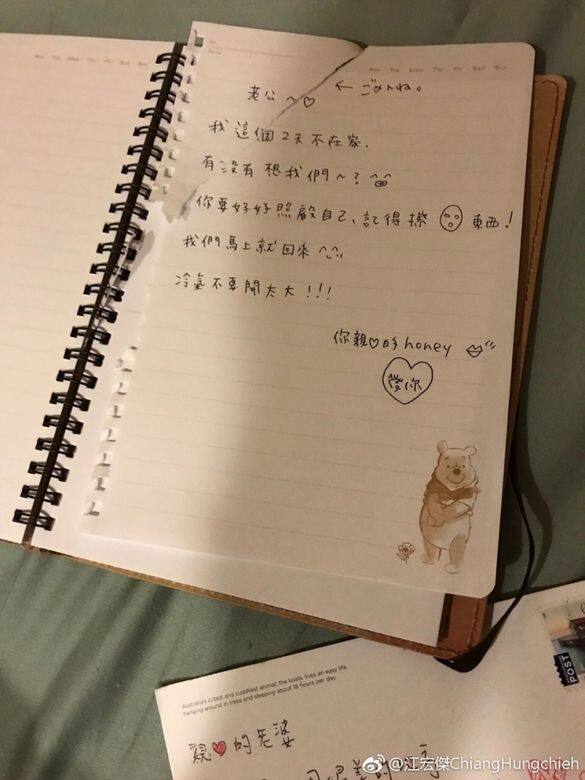 Mon Tue Wed Thu Fri Sat Sun
Mon Tue Wed Thu Fri Sat Sun
老公~♡ ← ごめんね。
我這個2天不在家.
有沒有想我們~?
你要好好照顧自己、記得擦東西!
我們馬上就回來 ^^
冷氣不要開太大!!!
你親♡的honey
愛你
Australia's cutest and cuddliest animal, the koala, lives an easy life
hanging around in trees and sleeping about 18 hours per day.
POST
親♥的老婆
@江宏傑ChiangHungchieh